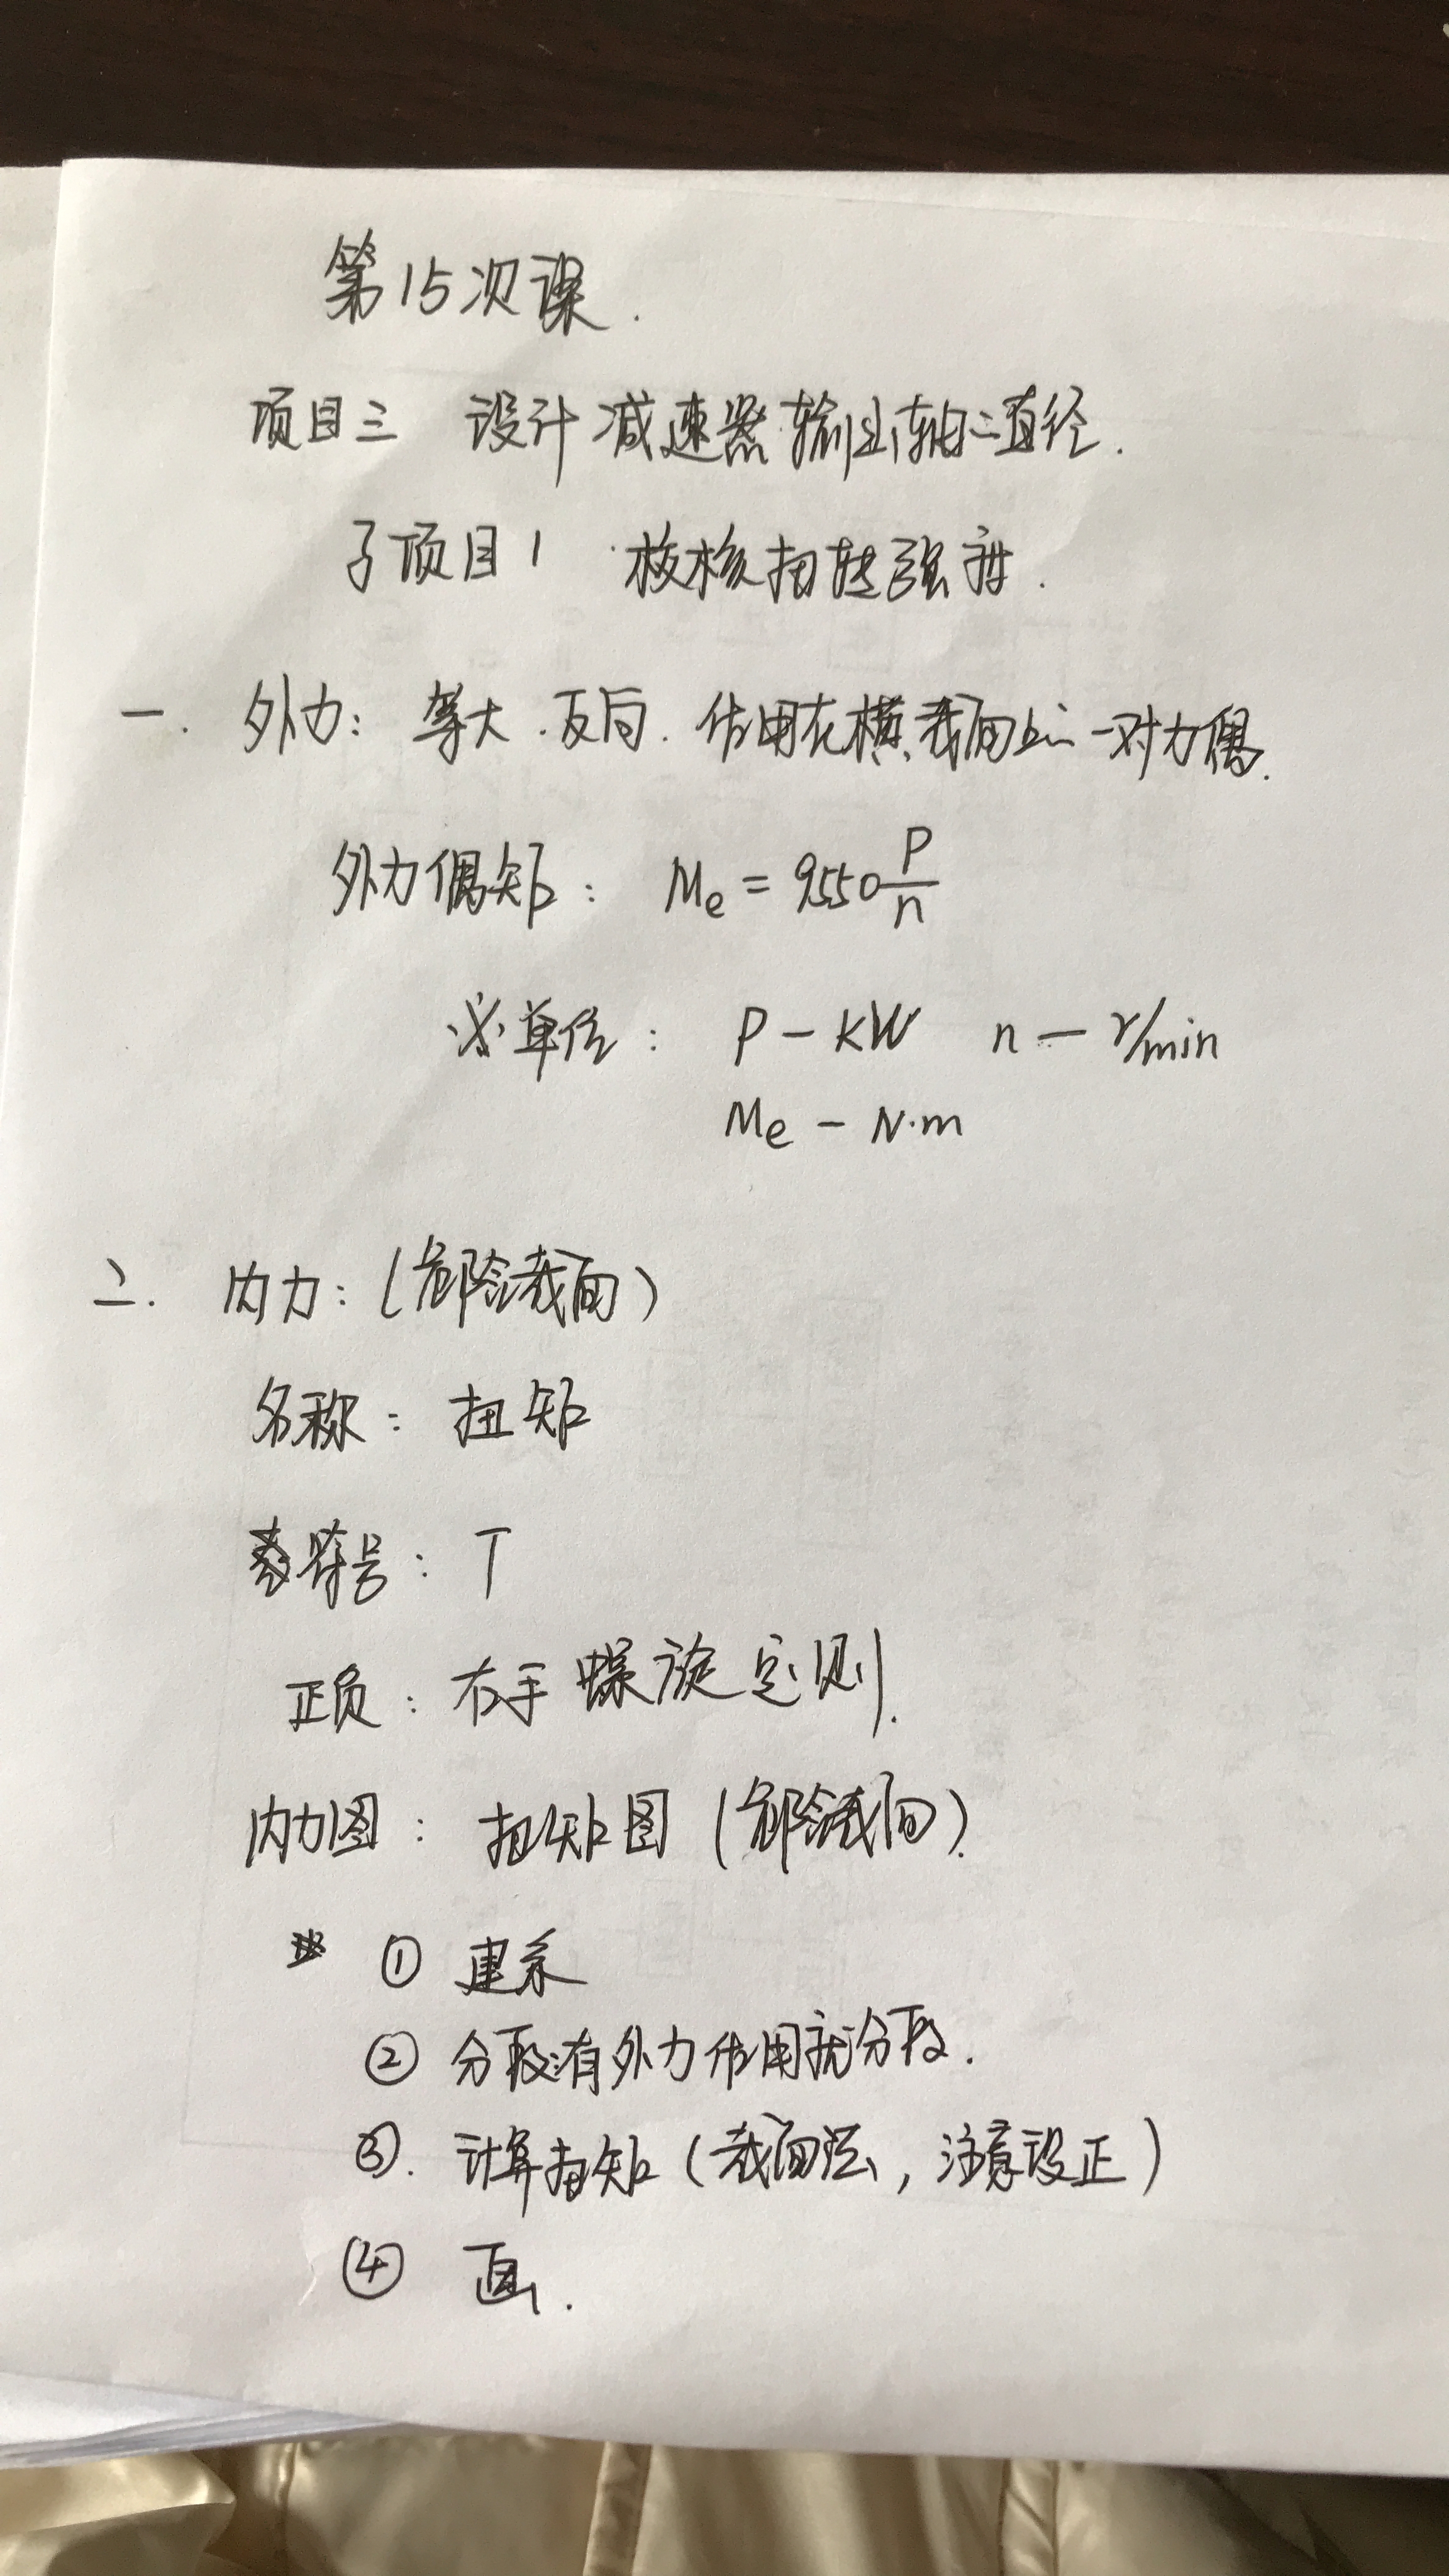 第15次课.
项目三 设计减速器输出轴之直径.
子项目1 校核扭转强度.
一. 外力: 等大.反向. 作用在横截面上之一对力偶.
外力偶矩: Me = 9550 P/n
※单位: P — KW n — r/min
Me — N·m
二. 内力: (危险截面)
名称: 扭矩
符号: T
正负: 右手螺旋定则.
内力图: 扭矩图 (危险截面).
① 建系
② 分段:有外力作用就分段.
③. 计算扭矩 (截面法, 注意设正)
④ 画.